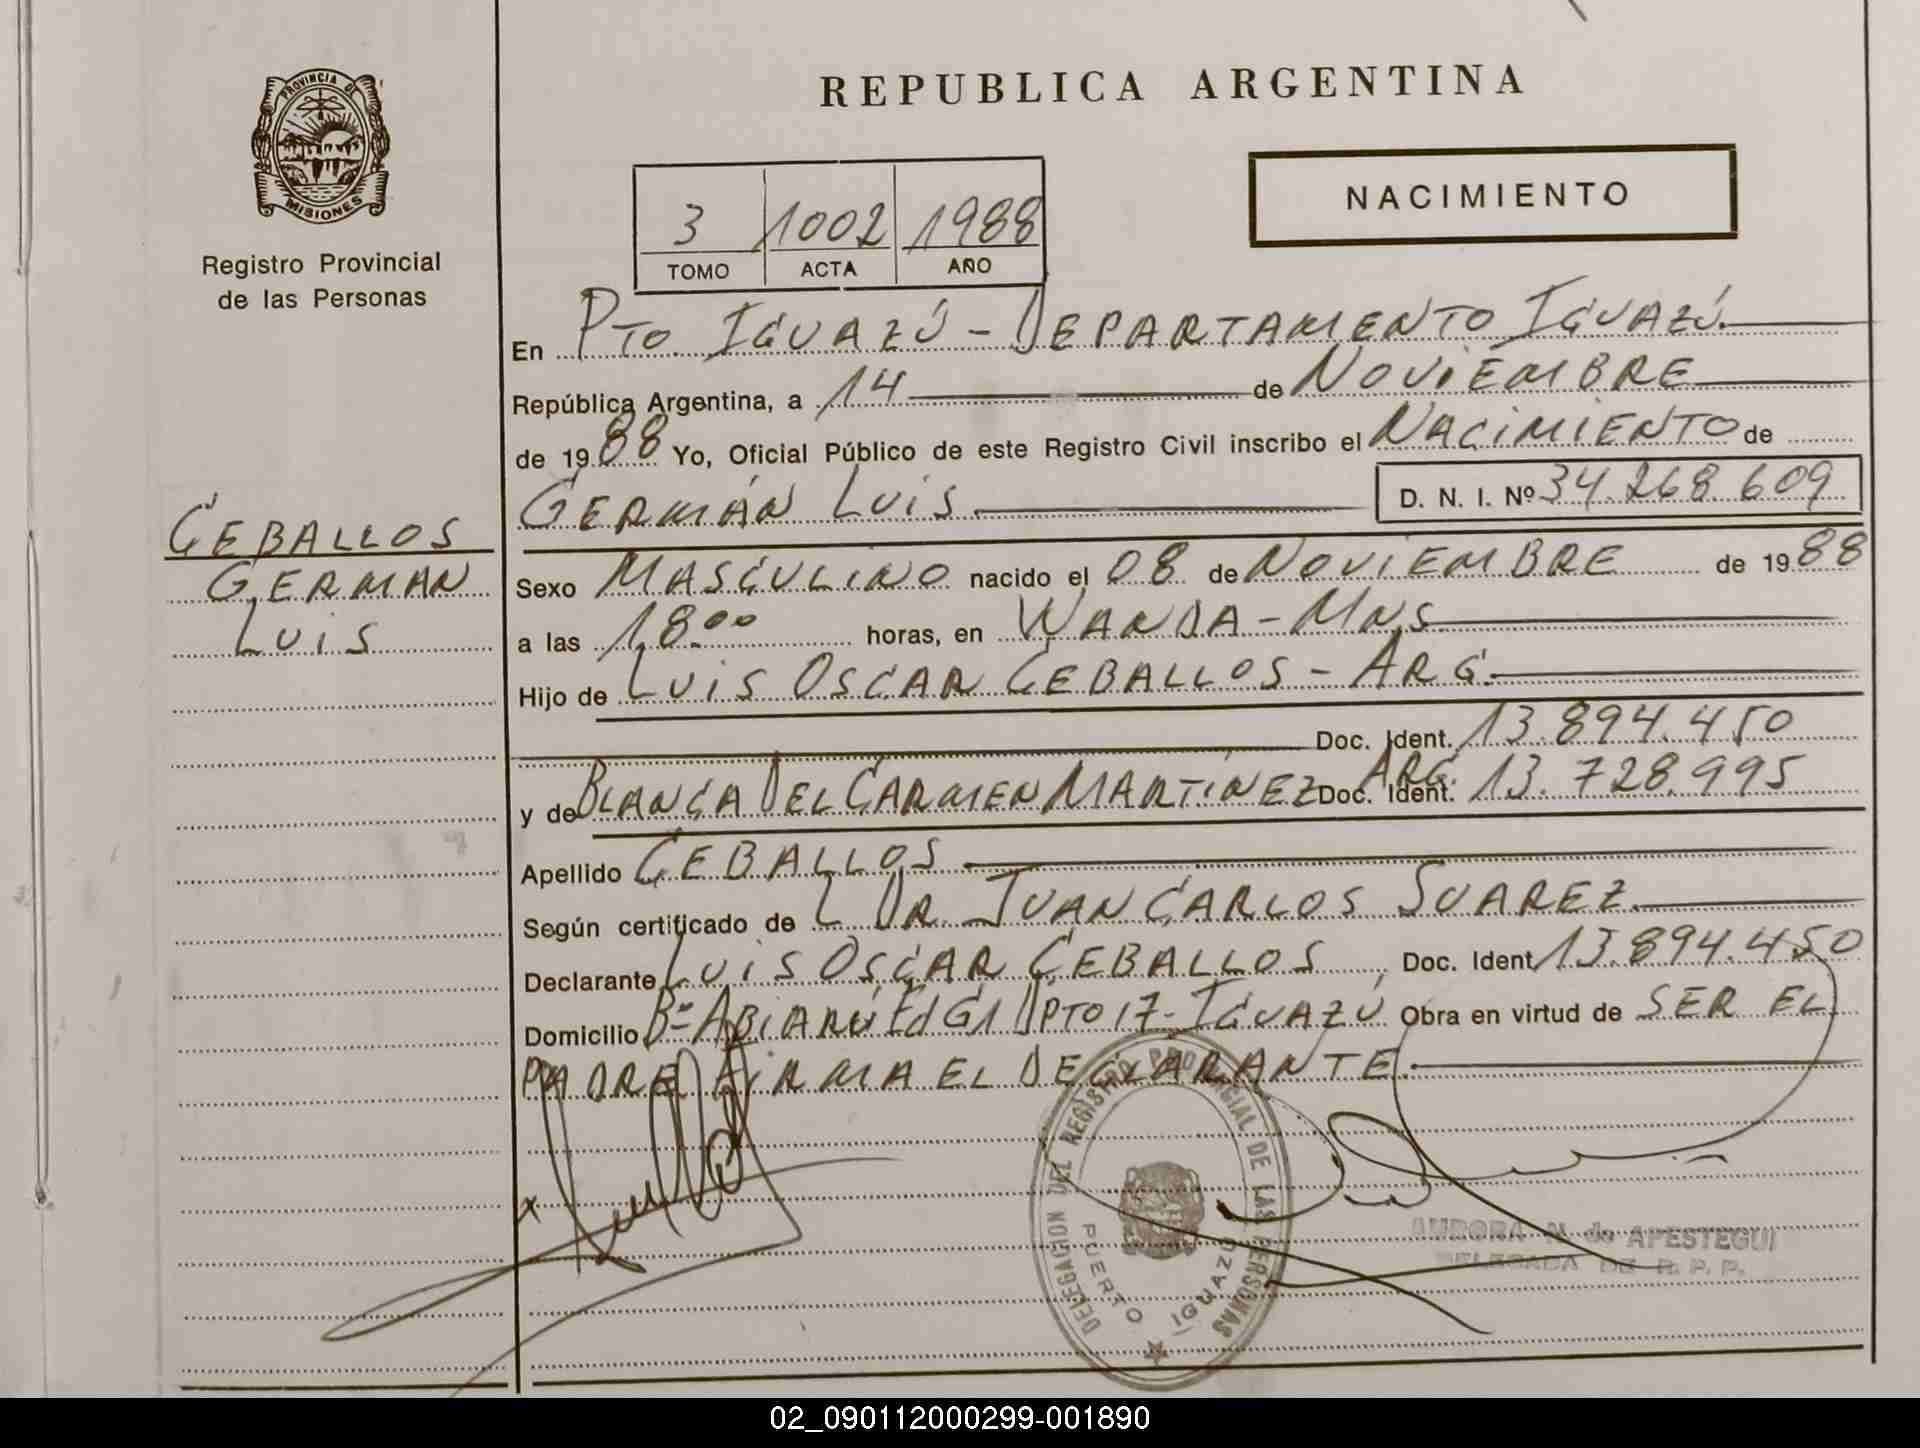 REPUBLICA ARGENTINA
PROVINCIA DE
MISIONES
Registro Provincial
de las Personas
NACIMIENTO
3 1002 1988
TOMO ACTA AÑO
En PTO. IGUAZÚ - DEPARTAMENTO IGUAZÚ.
República Argentina, a 14 de NOVIEMBRE
de 1988 Yo, Oficial Público de este Registro Civil inscribo el NACIMIENTO de
GERMÁN LUIS D. N. I. Nº 34.268.609
CEBALLOS
GERMAN
LUIS
Sexo MASCULINO nacido el 08 de NOVIEMBRE de 1988
a las 18.00 horas, en WANDA - MNS.
Hijo de LUIS OSCAR CEBALLOS - ARG.
Doc. Ident. 13.894.450
y de BLANCA DEL CARMEN MARTÍNEZ ARG. Doc. Ident. 13.728.995
Apellido CEBALLOS
Según certificado de L DR. JUAN CARLOS SUAREZ
Declarante LUIS OSCAR CEBALLOS, Doc. Ident 13.894.450
Domicilio Bº ABIARÚ Ed G1 DPTO 17 - IGUAZÚ Obra en virtud de SER EL
PADRE FIRMA EL DECLARANTE.
DELEGACION DEL REGISTRO PROVINCIAL DE LAS PERSONAS
PUERTO IGUAZÚ
AURORA N. de APESTEGUI
DELEGADA DE R. P. P.
02_090112000299-001890